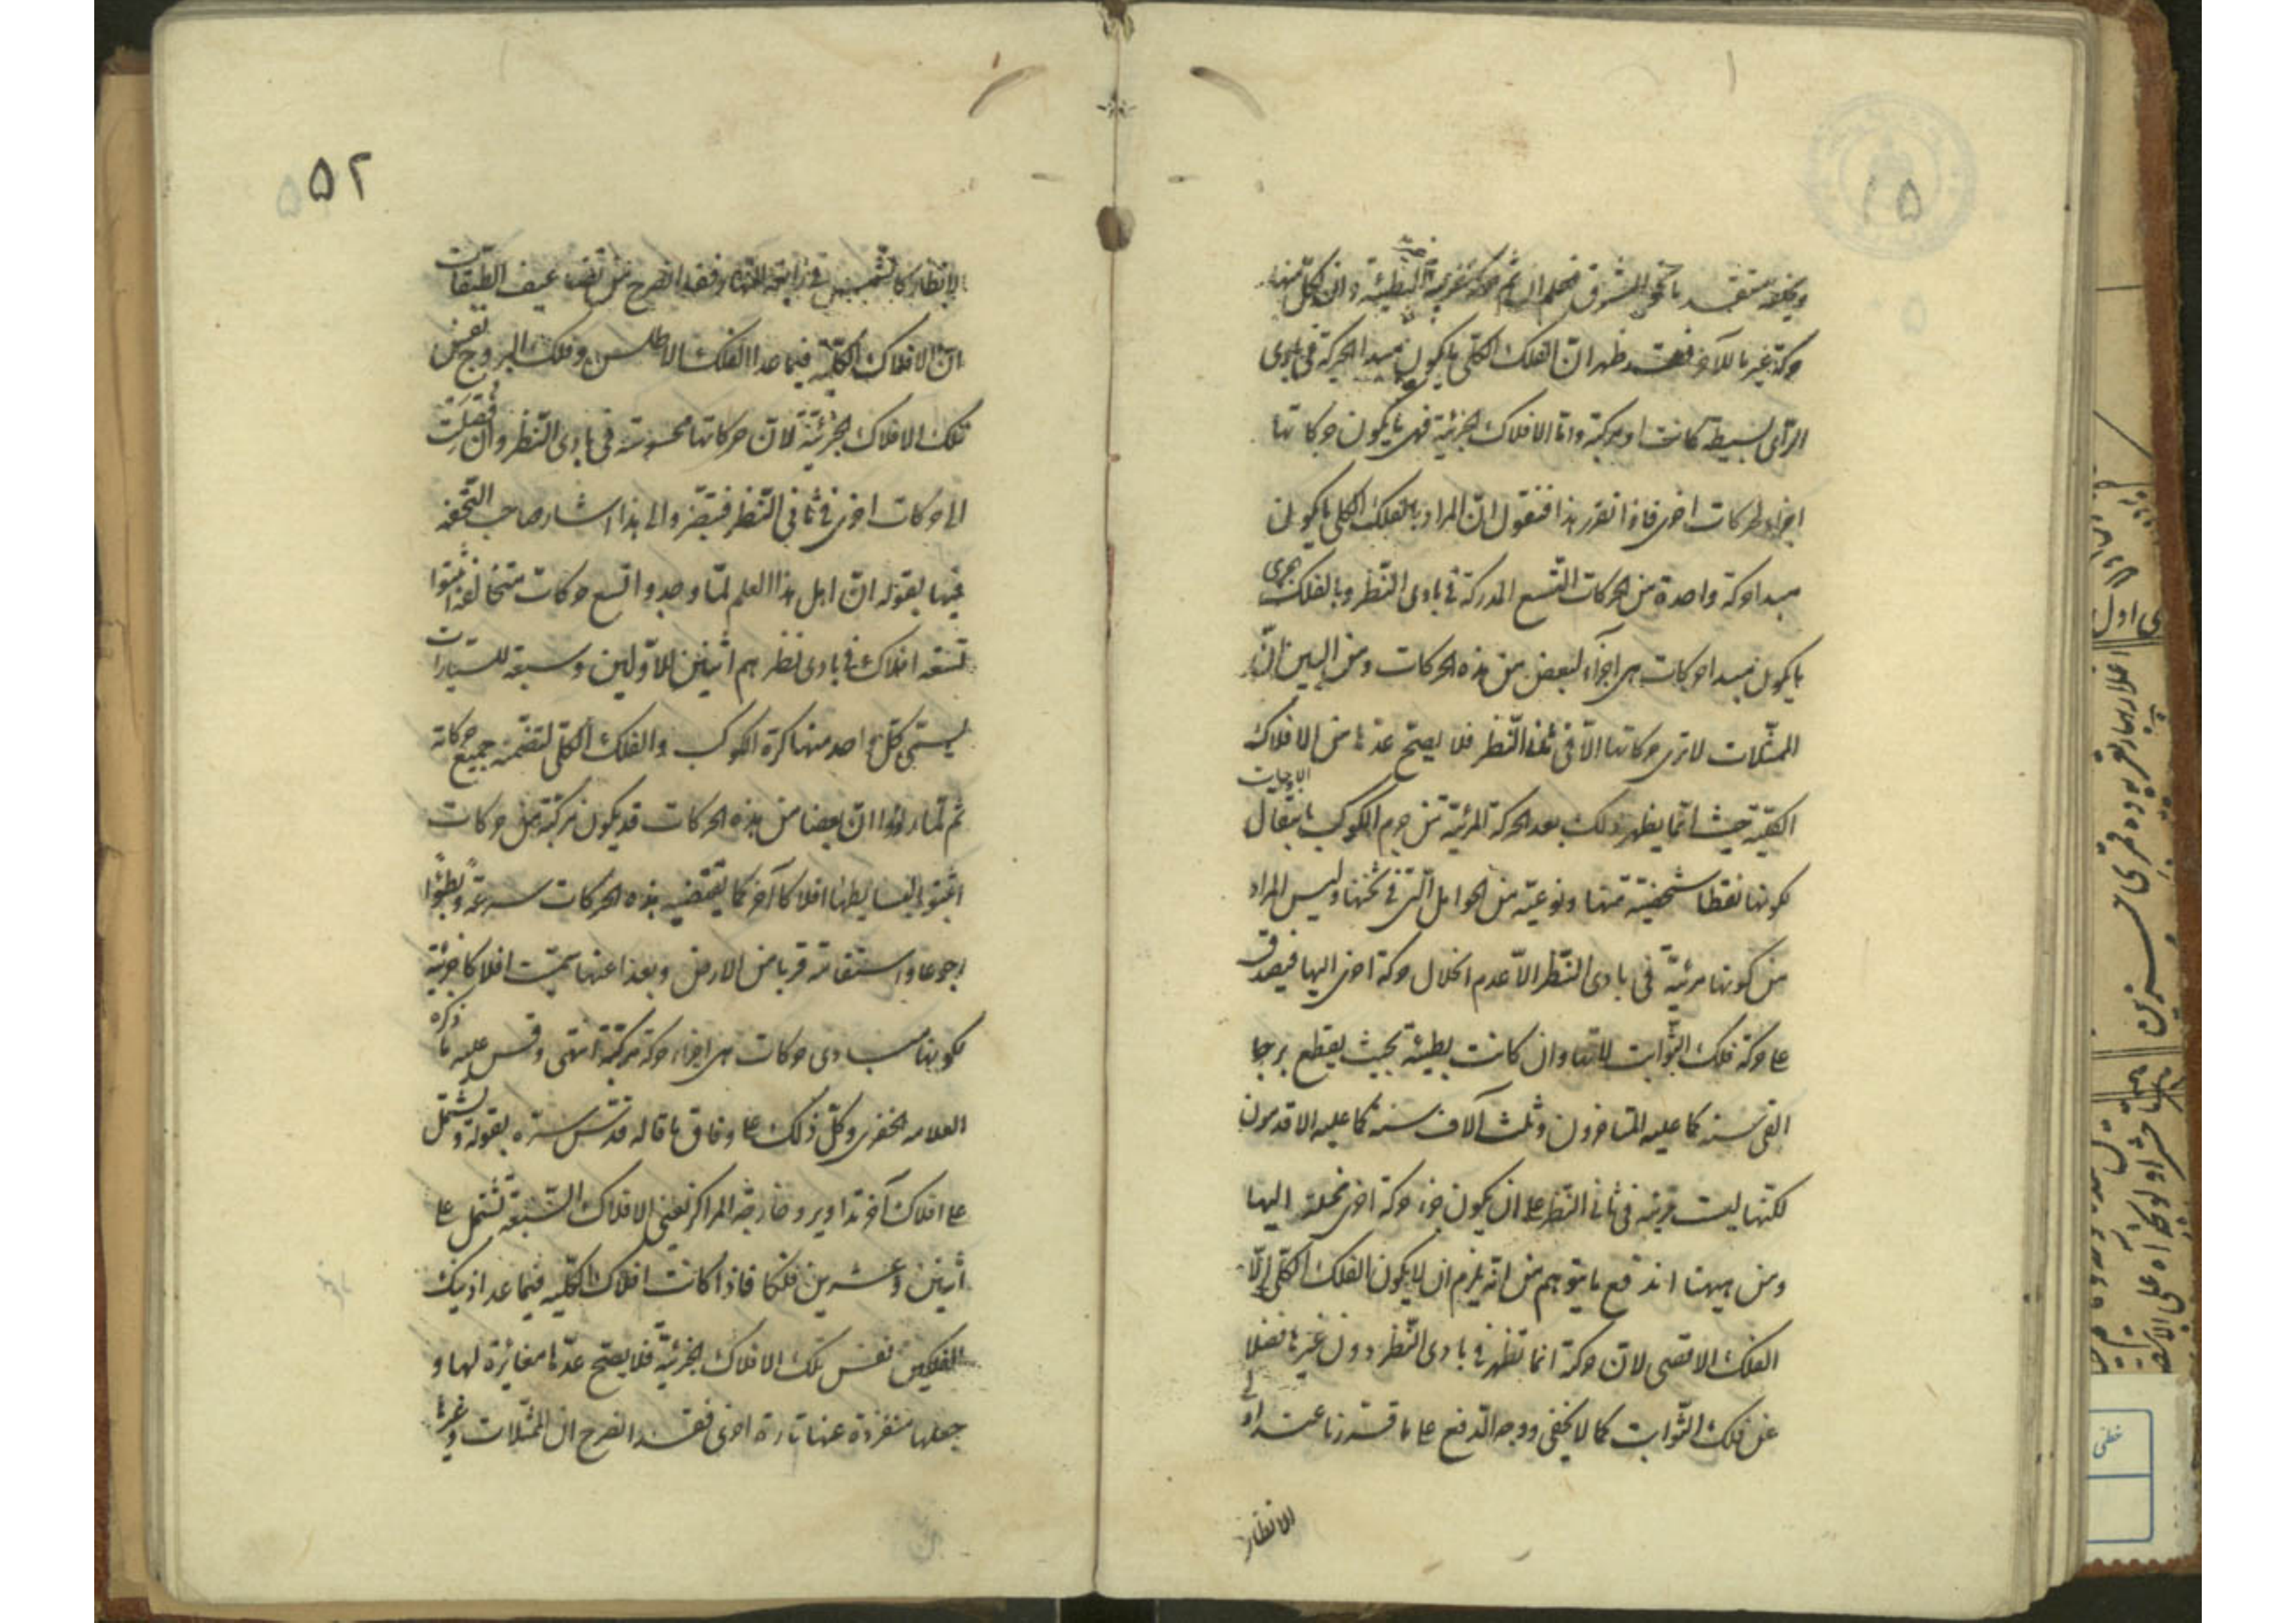 حركة غيرها للآخر فقد ظهر ان الفلك الكلى ما يكون مبدا لحركة فى بادى
الرأى بسيطة كانت او مركبة واما الافلاك الجزئية فهى ما يكون حركاتها
اجزاء لحركات اخرى فاذا تقرر هذا فنقول ان المراد بالفلك الكلى ما يكون
مبدا حركة واحدة من الحركات التسع المدركة فى بادى النظر وبالفلك الجزئى
ما يكون مبدا حركات هى اجزاء لبعض من هذه الحركات ومن البين ان
الممثلات لا ترى حركاتها الا فى ثانى النظر فلا يصح عدها من الافلاك
الكلية حيث انما يظهر ذلك بعد الحركة المرئية من جرم الكوكب بانتقال الاوجات
كونها نقطا شخصية منها ونوعية من الحوامل التى فى ثخنها وليس المراد
من كونها مرئية فى بادى النظر الا عدم انحلال حركة اخرى اليها فيصدق
على حركة فلك الثوابت لانها وان كانت بطيئة بحيث يقطع برجا
الفى سنة كما عليه المتاخرون وثلث آلاف سنة كما عليه الاقدمون
لكنها ليست مرئية فى ثانى النظر على ان يكون جزء حركة اخرى منحلة اليها
ومن ههنا اندفع ما يتوهم من انه يلزم ان لا يكون الفلك الكلى الا
الفلك الاقصى لان حركة انما تظهر فى بادى النظر دون غيرها فضلا
عن فلك الثوابت كما لا يخفى ووجه الدفع على ما قررنا عند اولى
الانظار
۵۲
الانظار كالشمس فى رابعة النهار وفقد انصرح من تضاعيف الطبقات
ان الافلاك الكلية فيما عدا الفلك الاطلس وفلك البروج نفس
تلك الافلاك الجزئية لان حركاتها محسوسة فى بادى النظر وان فصلت
الى حركات اخرى فى ثانى النظر فتبصر والى هذا اشار صاحب التحفة
فيها بقوله ان اهل هذا العلم لما وجدوا تسع حركات متخالفة اثبتوا
تسعة افلاك فى بادى نظرهم اثنين للاولين وسبعة للسيارات
يسمى كل واحد منها كرة الكوكب والفلك الكلى لتضمنه جميع حركاته
ثم لما راوا ان بعضا من هذه الحركات قد يكون مركبة من حركات
اثبتوا لبسايطها افلاكا آخر كما يقتضيه هذه الحركات سرعة وبطؤا
رجوعا واستقامة قربا من الارض وبعدا عنها سميت افلاكا جزئية
لكونها مبادى حركات هى اجزاء حركة مركبة انتهى وقس عليه ما ذكره
العلامه الخفرى وكل ذلك على وفاق ما قاله قدس سره بقوله وتشتمل
على افلاك آخر تداوير وخارجة المراكز يعنى الافلاك السبعة تشتمل على
اثنين وعشرين فلكا فاذا كانت افلاك الكلية فيما عدا ذينك
الفلكين نفس تلك الافلاك الجزئية فلا يصح عدها مغايرة لها و
جعلها منفردة عنها تارة اخرى فقد انصرح ان الممثلات وغيرها